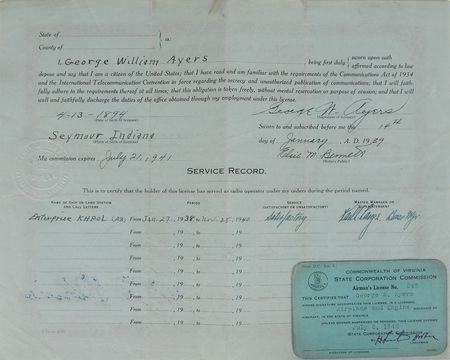 State of
ss:
County of
I, George William Ayers being first duly sworn upon oath affirmed according to law
depose and say that I am a citizen of the United States; that I have read and am familiar with the requirements of the Communications Act of 1934
and the International Telecommunication Convention in force regarding the secrecy and unauthorized publication of communications; that I will faith-
fully adhere to the requirements thereof at all times; that this obligation is taken freely, without mental reservation or purpose of evasion; and that I will
well and faithfully discharge the duties of the office obtained through my employment under this license.
4-13-1894
(Date of birth of licensee)
George W. Ayers
(Signature of licensee)
Seymour Indiana
(Place of birth of licensee)
Sworn to and subscribed before me this 14th
day of January, A. D. 1939
My commission expires July 21, 1941
Elsie M. Bennett
(Notary Public)
SERVICE RECORD.
This is to certify that the holder of this license has served as radio operator under my orders during the period named.
NAME OF SHIP OR LAND STATION AND CALL LETTERS
PERIOD
SERVICE (SATISFACTORY OR UNSATISFACTORY)
MASTER MANAGER OR SUPERINTENDENT
Enterprise KHPOL From Jan. 27, 1938 to Nov. 25, 1940 Satisfactory
From , 19 , to , 19
From , 19 , to , 19
From , 19 , to , 19
From , 19 , to , 19
From , 19 , to , 19
From , 19 , to , 19
From , 19 , to , 19
COMMONWEALTH OF VIRGINIA
STATE CORPORATION COMMISSION
Airman's License No.
THIS CERTIFIES THAT George W. Ayers
WHOSE SIGNATURE ACCOMPANIES THIS LICENSE, IS A LICENSED
Airplane and Engine
AIRCRAFT, IN THE STATE OF VIRGINIA
UNLESS SOONER SUSPENDED OR REVOKED, THIS LICENSE EXPIRES
July 6, 1940
STATE CORPORATION COMMISSION